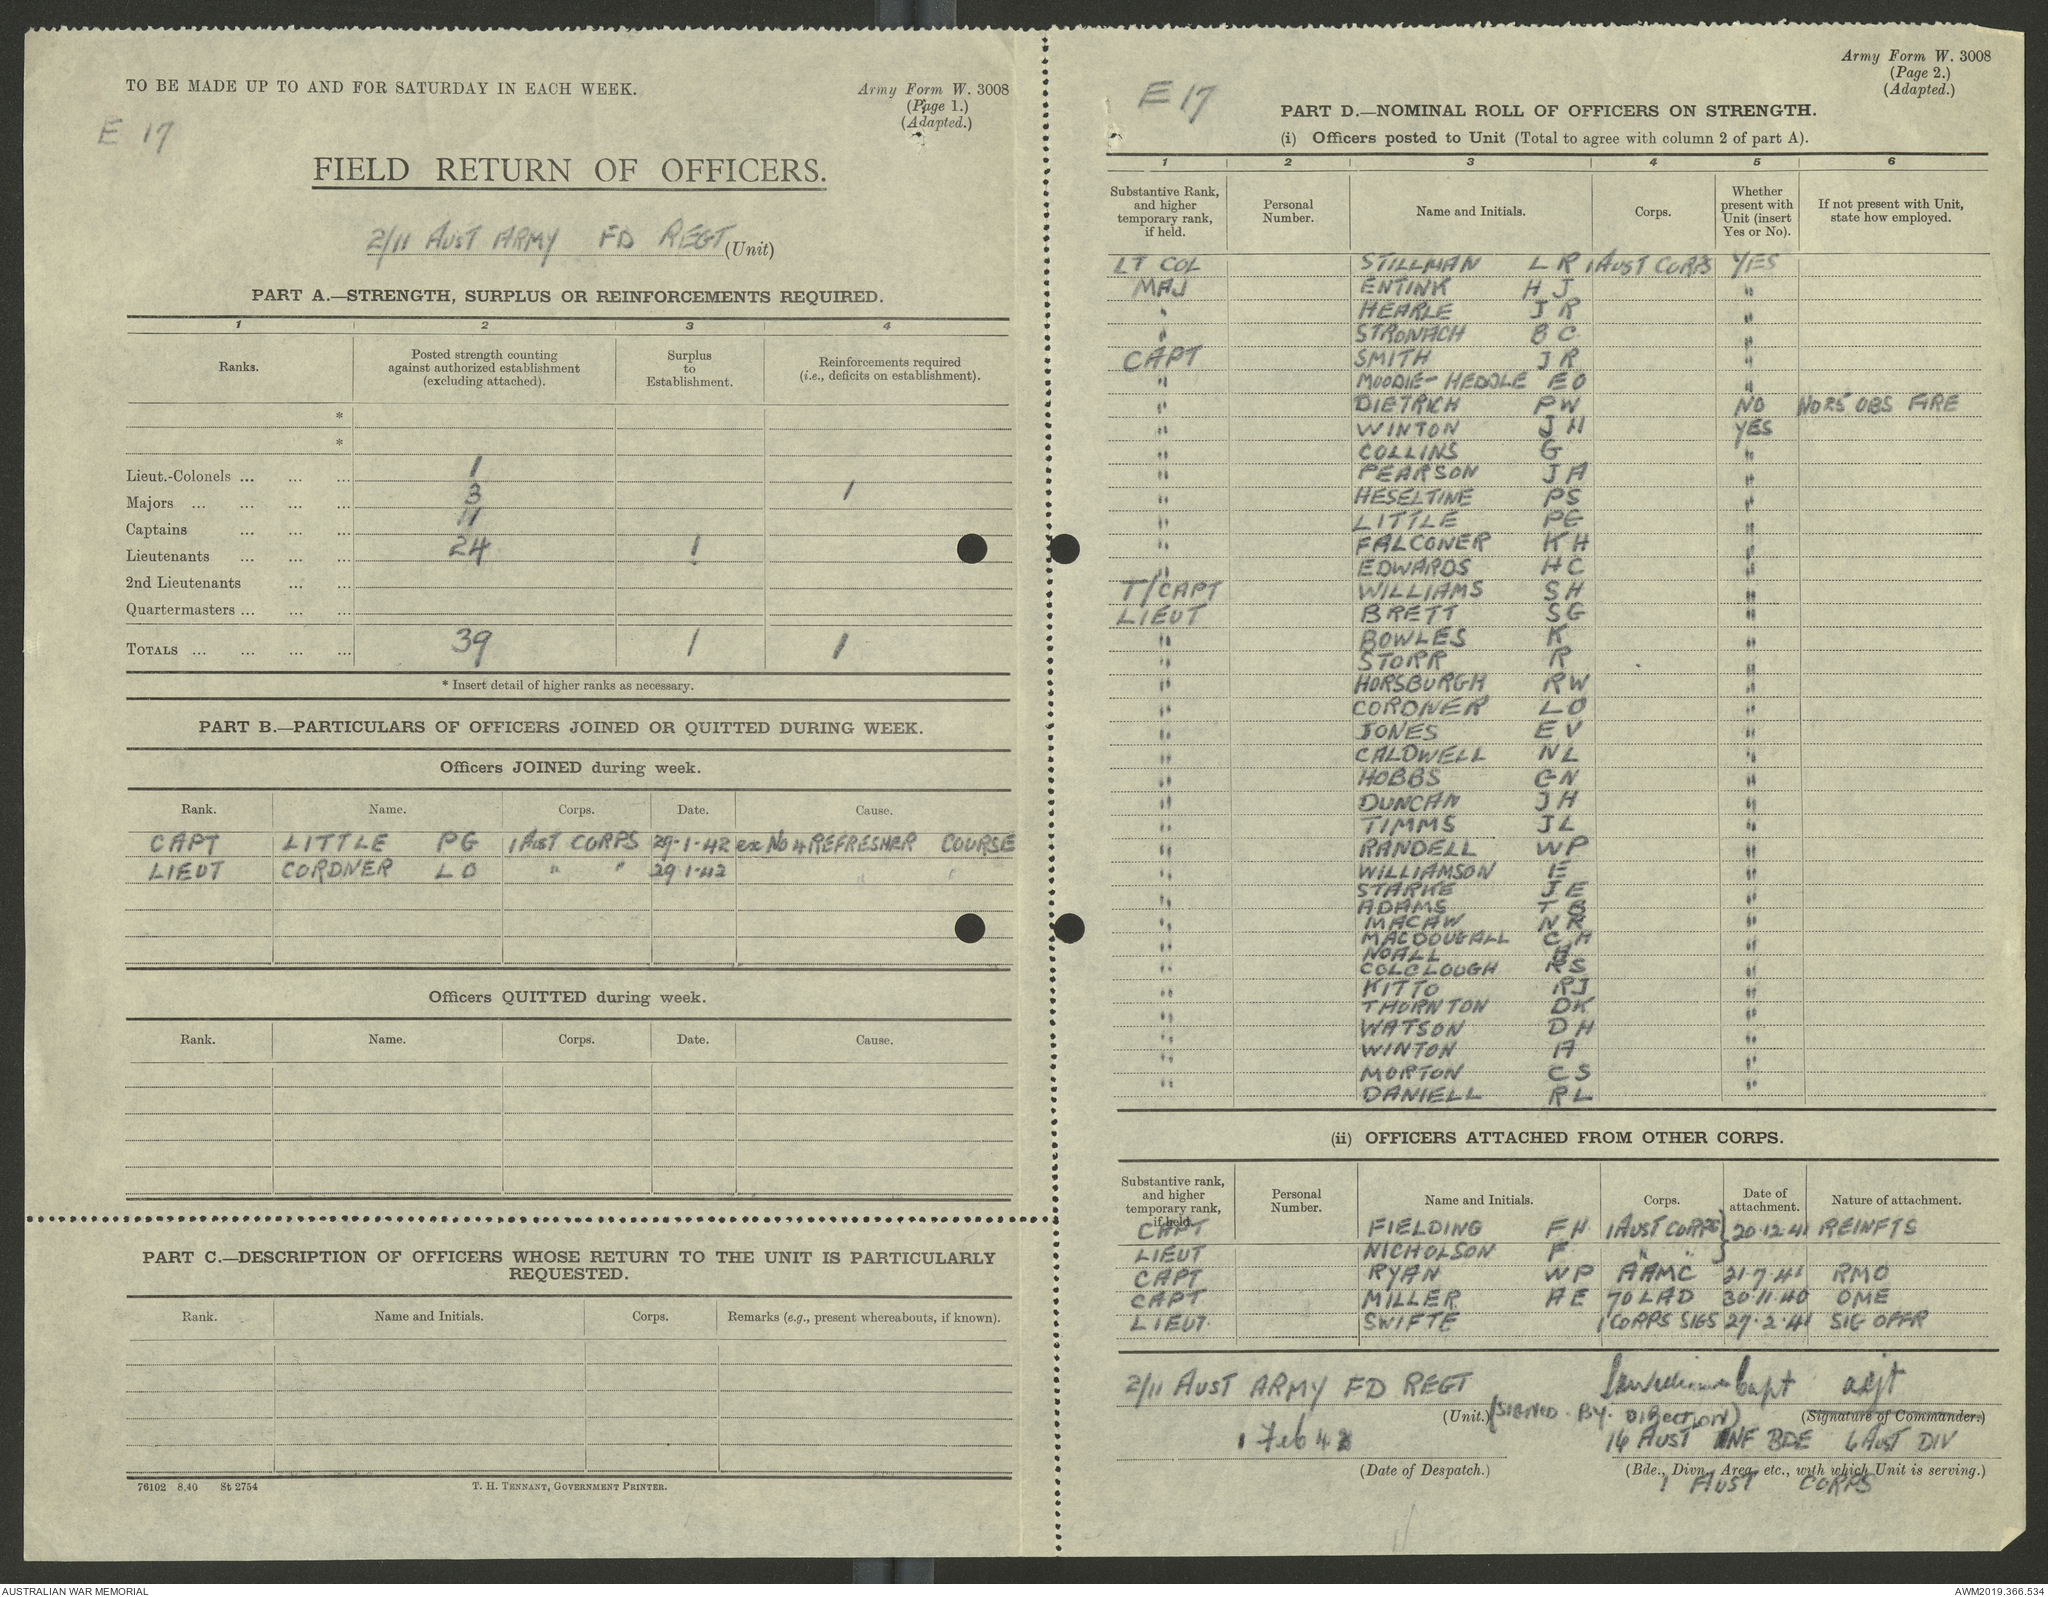 TO BE MADE UP TO AND FOR SATURDAY IN EACH WEEK.
Army Form W. 3008
(Page 1.)
(Adapted.)
E 17
FIELD RETURN OF OFFICERS.
2/11 AUST ARMY FD REGT (Unit)
PART A.—STRENGTH, SURPLUS OR REINFORCEMENTS REQUIRED.
1 2 3 4
Ranks. Posted strength counting against authorized establishment (excluding attached). Surplus to Establishment. Reinforcements required (i.e., deficits on establishment).
*
*
Lieut.-Colonels ... ... ... 1
Majors ... ... ... ... 3 1
Captains ... ... ... 11
Lieutenants ... ... ... 24 1
2nd Lieutenants ... ...
Quartermasters ... ... ...
TOTALS ... ... ... ... 39 1 1
* Insert detail of higher ranks as necessary.
PART B.—PARTICULARS OF OFFICERS JOINED OR QUITTED DURING WEEK.
Officers JOINED during week.
Rank. Name. Corps. Date. Cause.
CAPT LITTLE PG 1 AUST CORPS 29-1-42 ex No 4 REFRESHER COURSE
LIEUT CORDNER LO " " 29 1-42 " "
Officers QUITTED during week.
Rank. Name. Corps. Date. Cause.
PART C.—DESCRIPTION OF OFFICERS WHOSE RETURN TO THE UNIT IS PARTICULARLY
REQUESTED.
Rank. Name and Initials. Corps. Remarks (e.g., present whereabouts, if known).
76102 8.40 St 2754
T. H. TENNANT, GOVERNMENT PRINTER.
Army Form W. 3008
(Page 2.)
(Adapted.)
E 17
PART D.—NOMINAL ROLL OF OFFICERS ON STRENGTH.
(i) Officers posted to Unit (Total to agree with column 2 of part A).
1 2 3 4 5 6
Substantive Rank, and higher temporary rank, if held. Personal Number. Name and Initials. Corps. Whether present with Unit (insert Yes or No). If not present with Unit, state how employed.
LT COL STILLMAN L R 1 AUST CORPS YES
MAJ ENTINK H J "
" HEARLE J R "
" STRONACH B C "
CAPT SMITH J R "
" MOODIE-HEDDLE EO "
" DIETRICH PW NO NO 25 OBS FIRE
" WINTON J H YES
" COLLINS G "
" PEARSON J A "
" HESELTINE PS "
" LITTLE PG "
" FALCONER KH "
" EDWARDS HC "
T/CAPT WILLIAMS SH "
LIEUT BRETT SG "
" BOWLES K "
" STORR R "
" HORSBURGH RW "
" CORDNER LO "
" JONES EV "
" CALDWELL NL "
" HOBBS GN "
" DUNCAN JH "
" TIMMS JL "
" RANDELL WP "
" WILLIAMSON E "
" STARKE JE "
" ADAMS T B "
" MACAW NR "
" MACDOUGALL C A "
" NOALL "
" COLCLOUGH RS "
" KITTO RJ "
" THORNTON DK "
" WATSON DH "
" WINTON A "
" MORTON CS "
" DANIELL RL "
(ii) OFFICERS ATTACHED FROM OTHER CORPS.
Substantive rank, and higher temporary rank, if held. Personal Number. Name and Initials. Corps. Date of attachment. Nature of attachment.
CAPT FIELDING FH 1 AUST CORPS } 20.12.41 REINFTS
LIEUT NICHOLSON F " " }
CAPT RYAN WP AAMC 21.7.41 RMO
CAPT MILLER AE 70 LAD 30.11.40 OME
LIEUT. SWIFTE 1 CORPS SIGS 27.2.41 SIG OFFR
2/11 AUST ARMY FD REGT Capt adjt
(Unit.) (SIGNED BY DIRECTION) (Signature of Commander.)
1 Feb 42 16 AUST INF BDE 6 AUST DIV
(Date of Despatch.) (Bde., Divn., Area, etc., with which Unit is serving.)
1 AUST CORPS
AUSTRALIAN WAR MEMORIAL
AWM2019.366.534